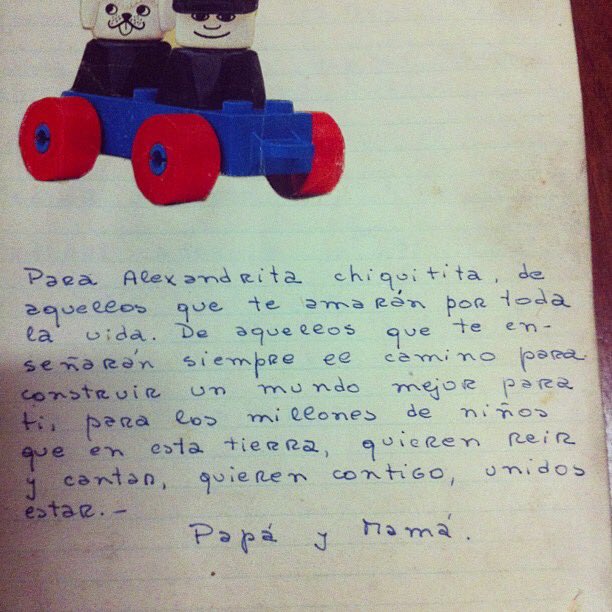 Para Alexandrita chiquitita, de
aquellos que te amarán por toda
la vida. De aquellos que te en-
señarán siempre el camino para
construir un mundo mejor para
ti, para los millones de niños
que en esta tierra, quieren reir
y cantar, quieren contigo, unidos
estar.-
Papá y Mamá.